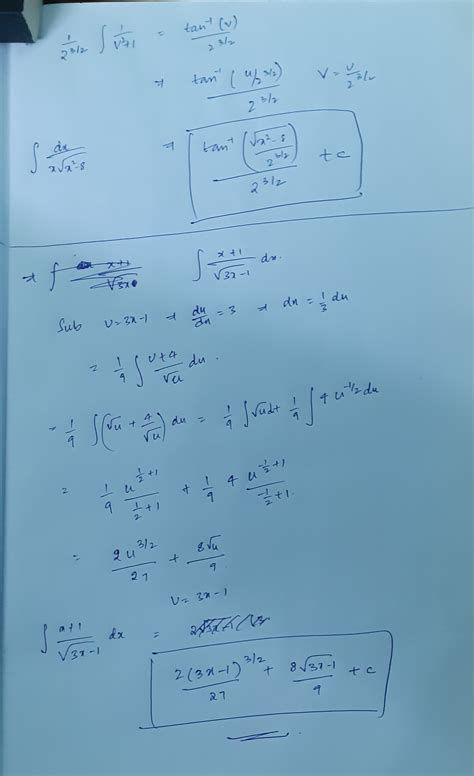 1/2^{3/2} ∫ 1/(v²+1) = tan⁻¹(v)/2^{3/2}
⇒ tan⁻¹(u/2^{3/2})/2^{3/2} v = u/2^{3/2}
∫ dx/(x√(x²-8)) ⇒ tan⁻¹(√(x²-8)/2^{3/2})/2^{3/2} + c
⇒ ∫ (x+1)/√(3x-1) dx.
Sub u = 3x-1 ⇒ du/dx = 3 ⇒ dx = 1/3 du
= 1/9 ∫ (u+4)/√u du.
= 1/9 ∫ (√u + 4/√u) du = 1/9 ∫ √u d + 1/9 ∫ 4 u^{-1/2} du
= 1/9 u^{1/2+1}/(1/2+1) + 1/9 4 u^{-1/2+1}/(-1/2+1).
= 2u^{3/2}/27 + 8√u/9.
u = 3x-1
∫ (x+1)/√(3x-1) dx =
2(3x-1)^{3/2}/27 + 8√(3x-1)/9 + c